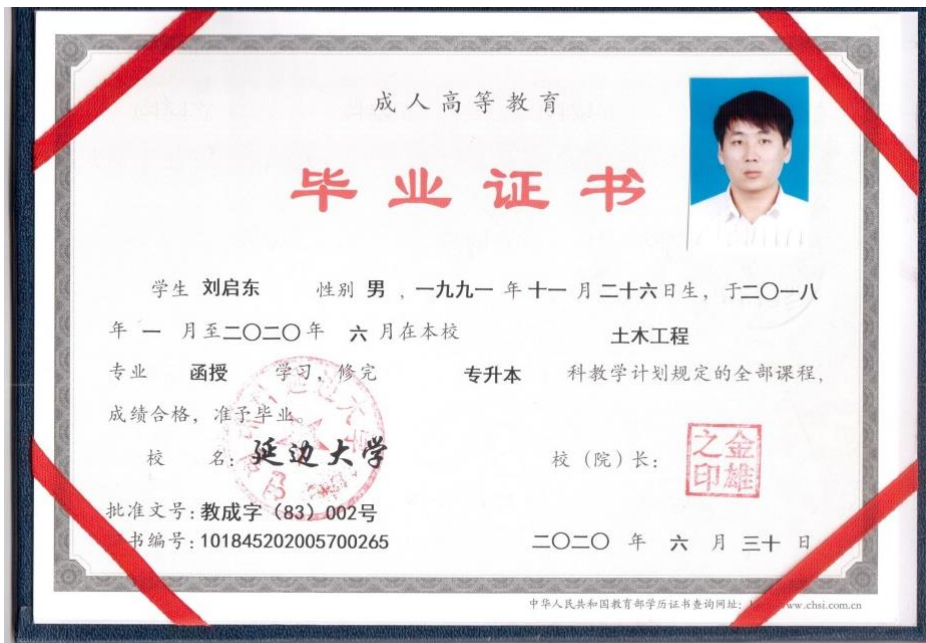 成人高等教育
毕业证书
学生 刘启东 性别 男 ，一九九一 年 十一 月 二十六 日生，于二〇一八
年 一 月至二〇二〇年 六 月在本校 土木工程
专业 函授 学习，修完 专升本 科教学计划规定的全部课程，
成绩合格，准予毕业。
校 名：延边大学 校（院）长：
金雄之印
批准文号：教成字（83）002号
书编号：101845202005700265 二〇二〇 年 六 月 三十 日
中华人民共和国教育部学历证书查询网址： www.chsi.com.cn